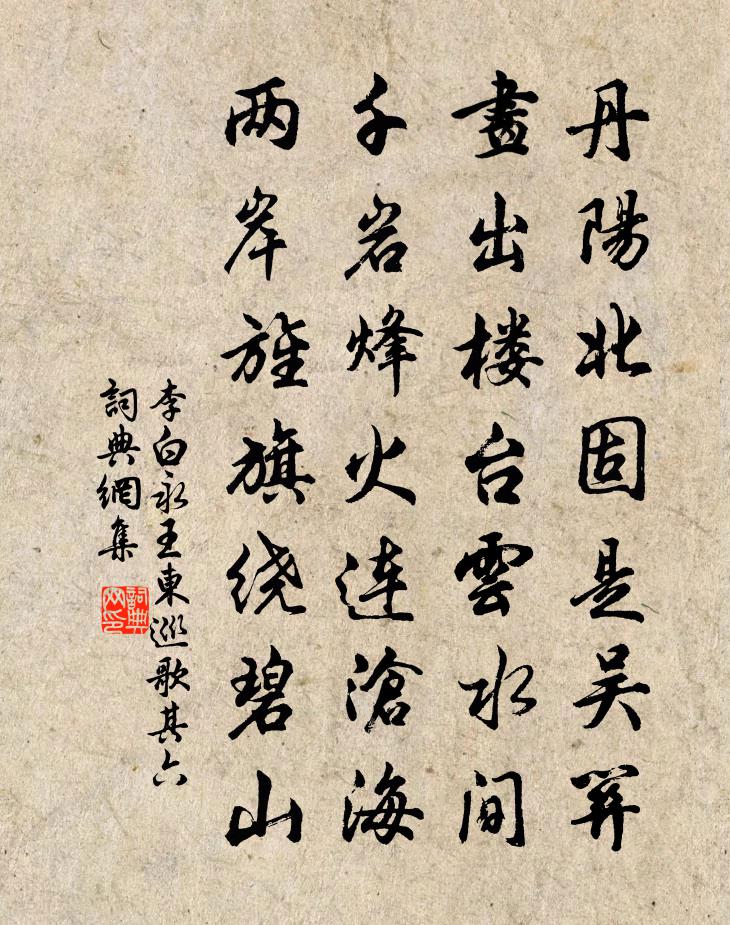 丹陽北固是吴關
畫出楼台雲水間
千岩烽火連滄海
两岸旌旗绕碧山
李白永王東巡歌其六
詞典網集
詞典
网印